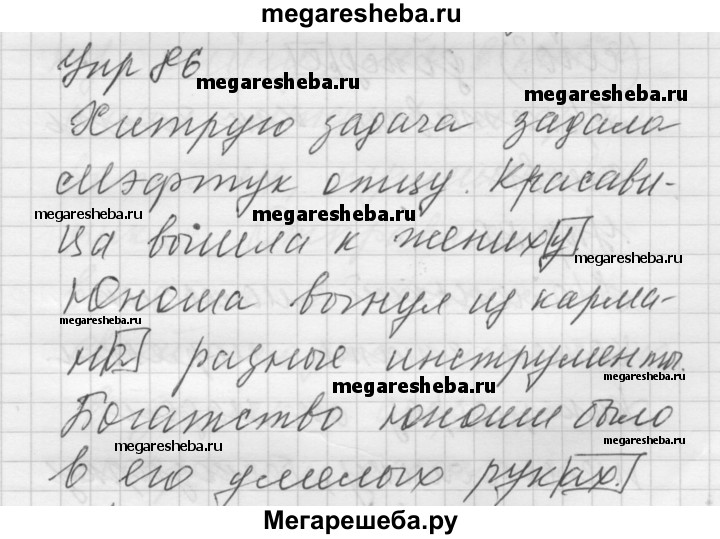 megaresheba.ru
Упр 86
megaresheba.ru
megaresheba.ru
Хитрую задача задала
Мэфтук отцу. Красави-
megaresheba.ru
megaresheba.ru
ца вышла к жениху
megaresheba.ru
Юноша вынул из карма-
megaresheba.ru
на разные инструменты.
megaresheba.ru
megaresheba.ru
Богатство юноши было
megaresheba.ru
megaresheba.ru
в его умелых руках.
Мегарешеба.ру